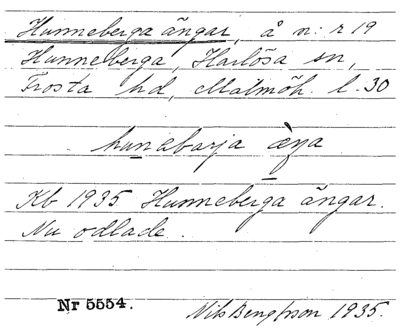 Hunneberga ängar, å n: r 19
Hunneberga, Harlösa sn,
Frosta hd, Malmöh. l. 30
hunabarja æŋa
Kb 1935 Hunneberga ängar.
Nu odlade.
Nr 5554.
Nils Bengtsson 1935.